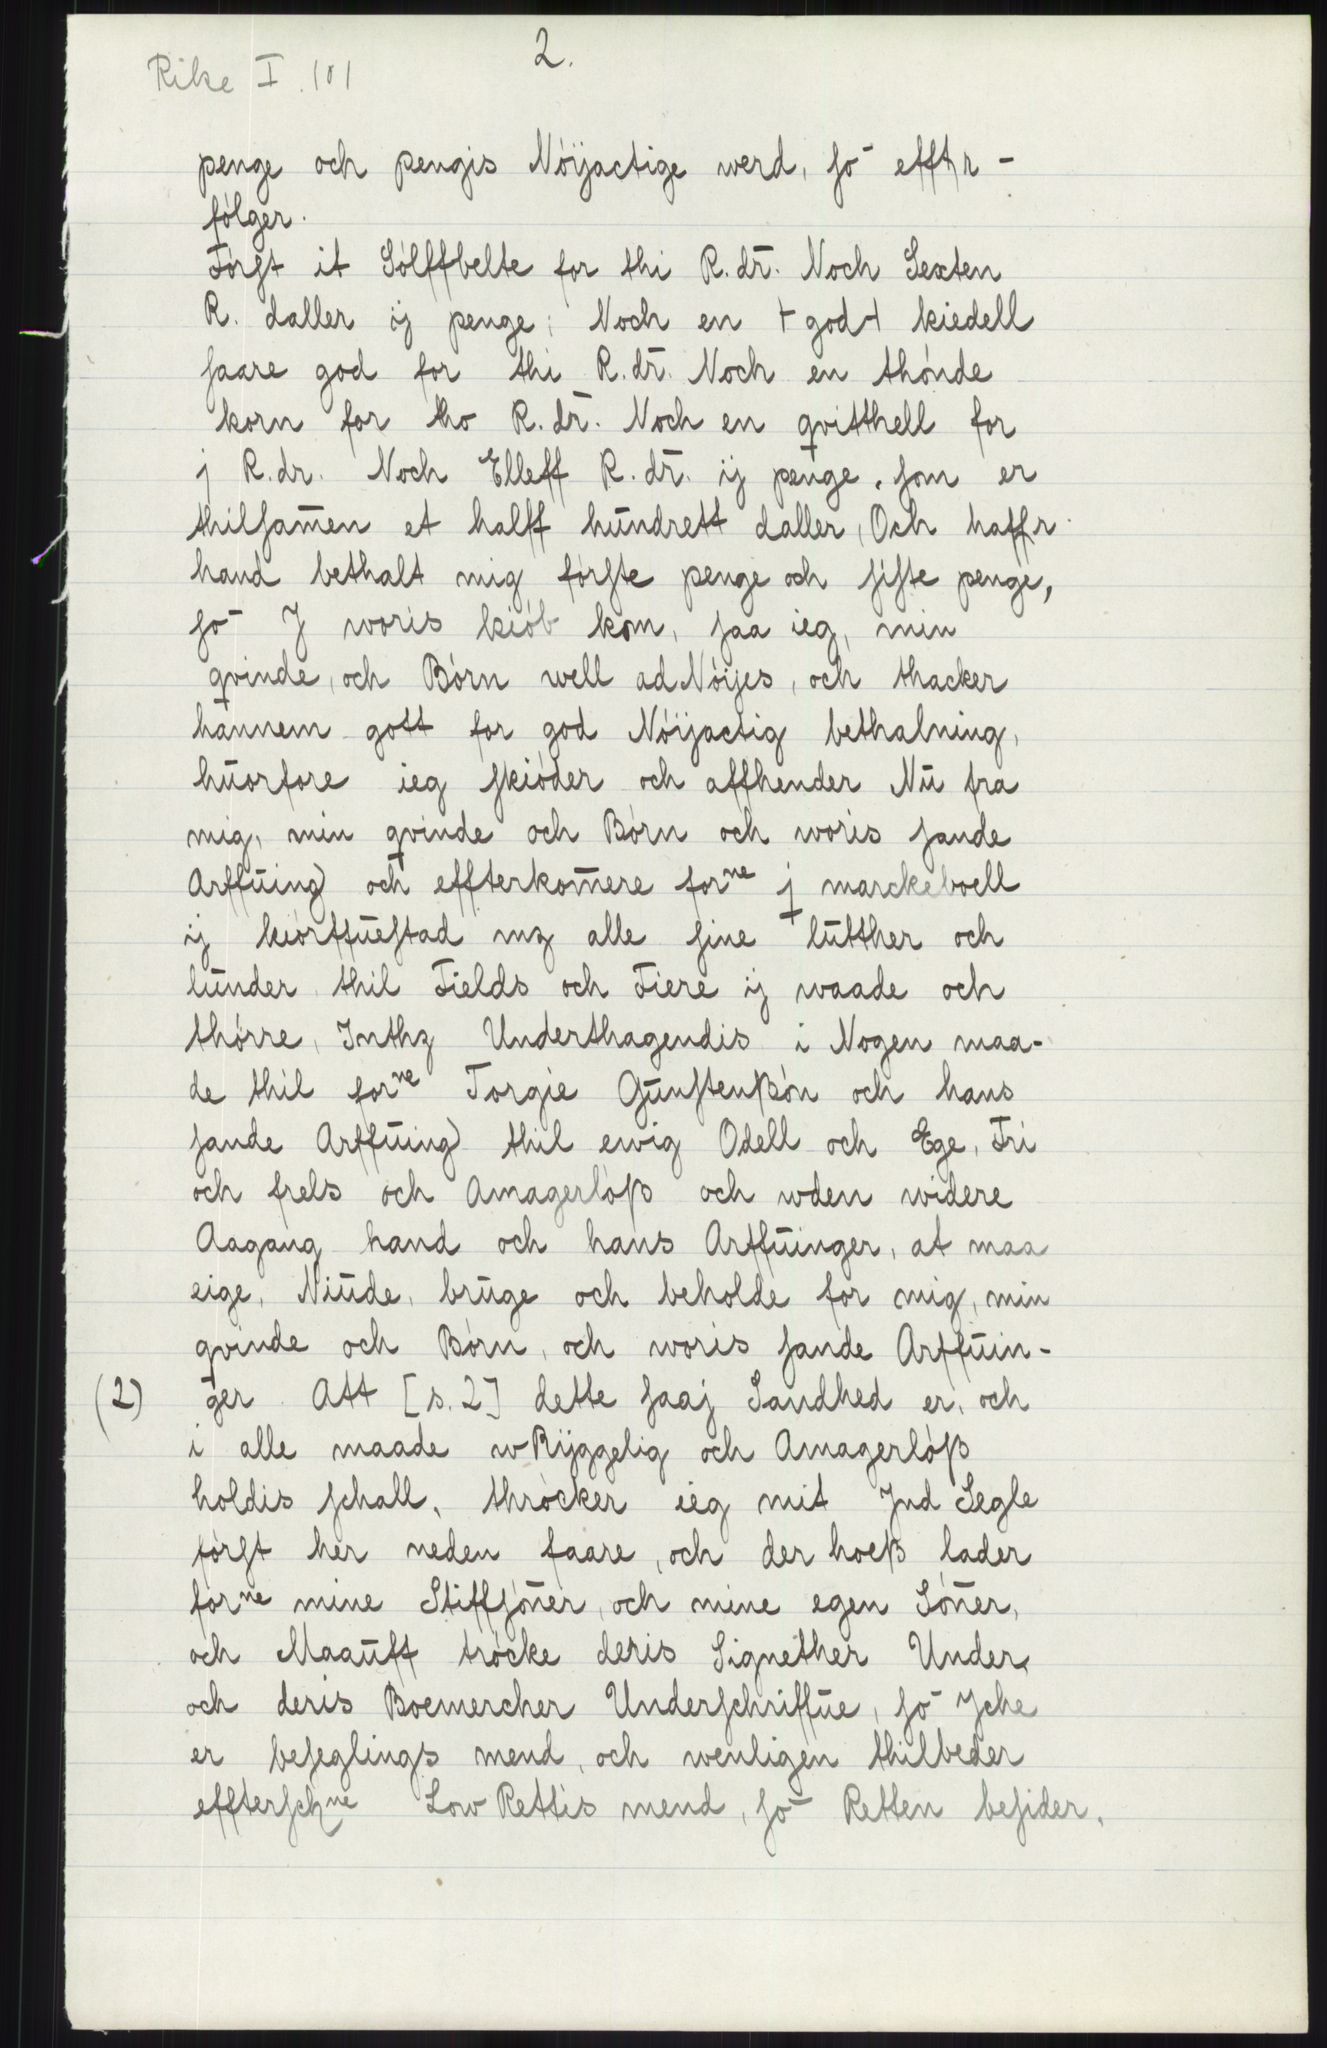 Rike I. 101
2.
penge och pengis Nöÿactige werd, ſo̅ efftr-
fölger.
Förſt it Sölffbelte for thi R.dr̅. Noch Sexten
R. daller ij penge; Noch en + god + kiedell
ſaare god for thi R.dr̅. Noch en thönde
korn for tho R.dr̅. Noch en qvitthell for
j R.dr. Noch Elleff R.dr̅. ij penge, ſom er
thilſam̅en et halff hundrett daller, Och haffr
hand bethalt mig förſte penge och ſiſte penge,
ſo̅ J woris kiöb kom, ſaa ieg, min
qvinde, och Börn well ad Nöÿes, och thacker
hannem gott for god Nöÿactig bethalning,
huorfore ieg ſkiöder och affhender Nu fra
mig, min qvinde och Börn och woris ſande
Arffuing) och effterkom̅ere forne j marckeboell
ij kiörffueſtad mz alle ſine lutther och
lunder thil Fields och Fiere ij waade och
thörre, Inthz Underthagendis i Nogen maa-
de thil forne Torgie Gunſtenßön och hans
ſande Arffuing) thil ewig Odell och Ege, Fri
och frels och Amagerlöß och wden widere
Aagang hand och hans Arffuinger, at maa
eige, Niude, bruge och beholde for mig, min
qvinde och Börn, och woris ſande Arffuin-
(2) ger Att [s. 2] dette ſaaj Sandhed er, och
i alle maade wRÿggelig och Amagerlöß
holdis ſchall, thröcker ieg mit Jnd Segle
förſt her neden faare, och der hoeß lader
forne mine Stiffſön̅er, och mine egen Sön̅er,
och Maauff tröcke deris Signether Under,
och deris Boemercher Underſchriffue, ſo̅ Jche
er beſeglings mend, och wenligen thilbeder
effterſchne Low Rettis mend, ſo̅ Retten beſider.